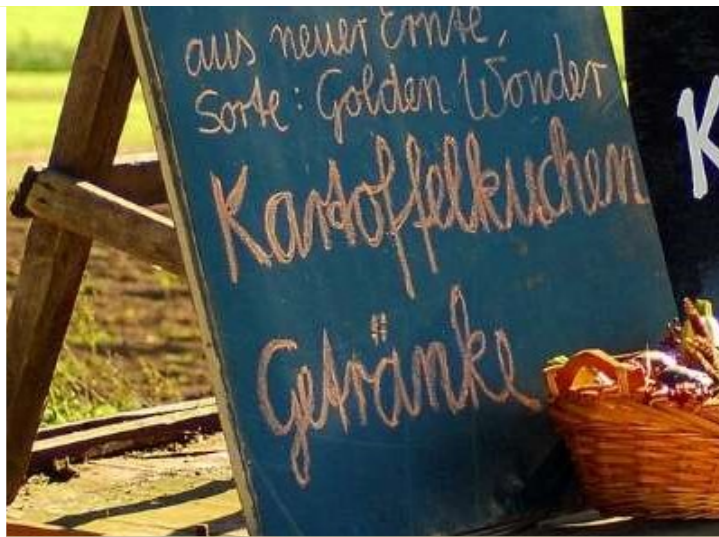 aus neuer Ernte,
Sorte: Golden Wonder
Kartoffelkuchen
Getränke
K